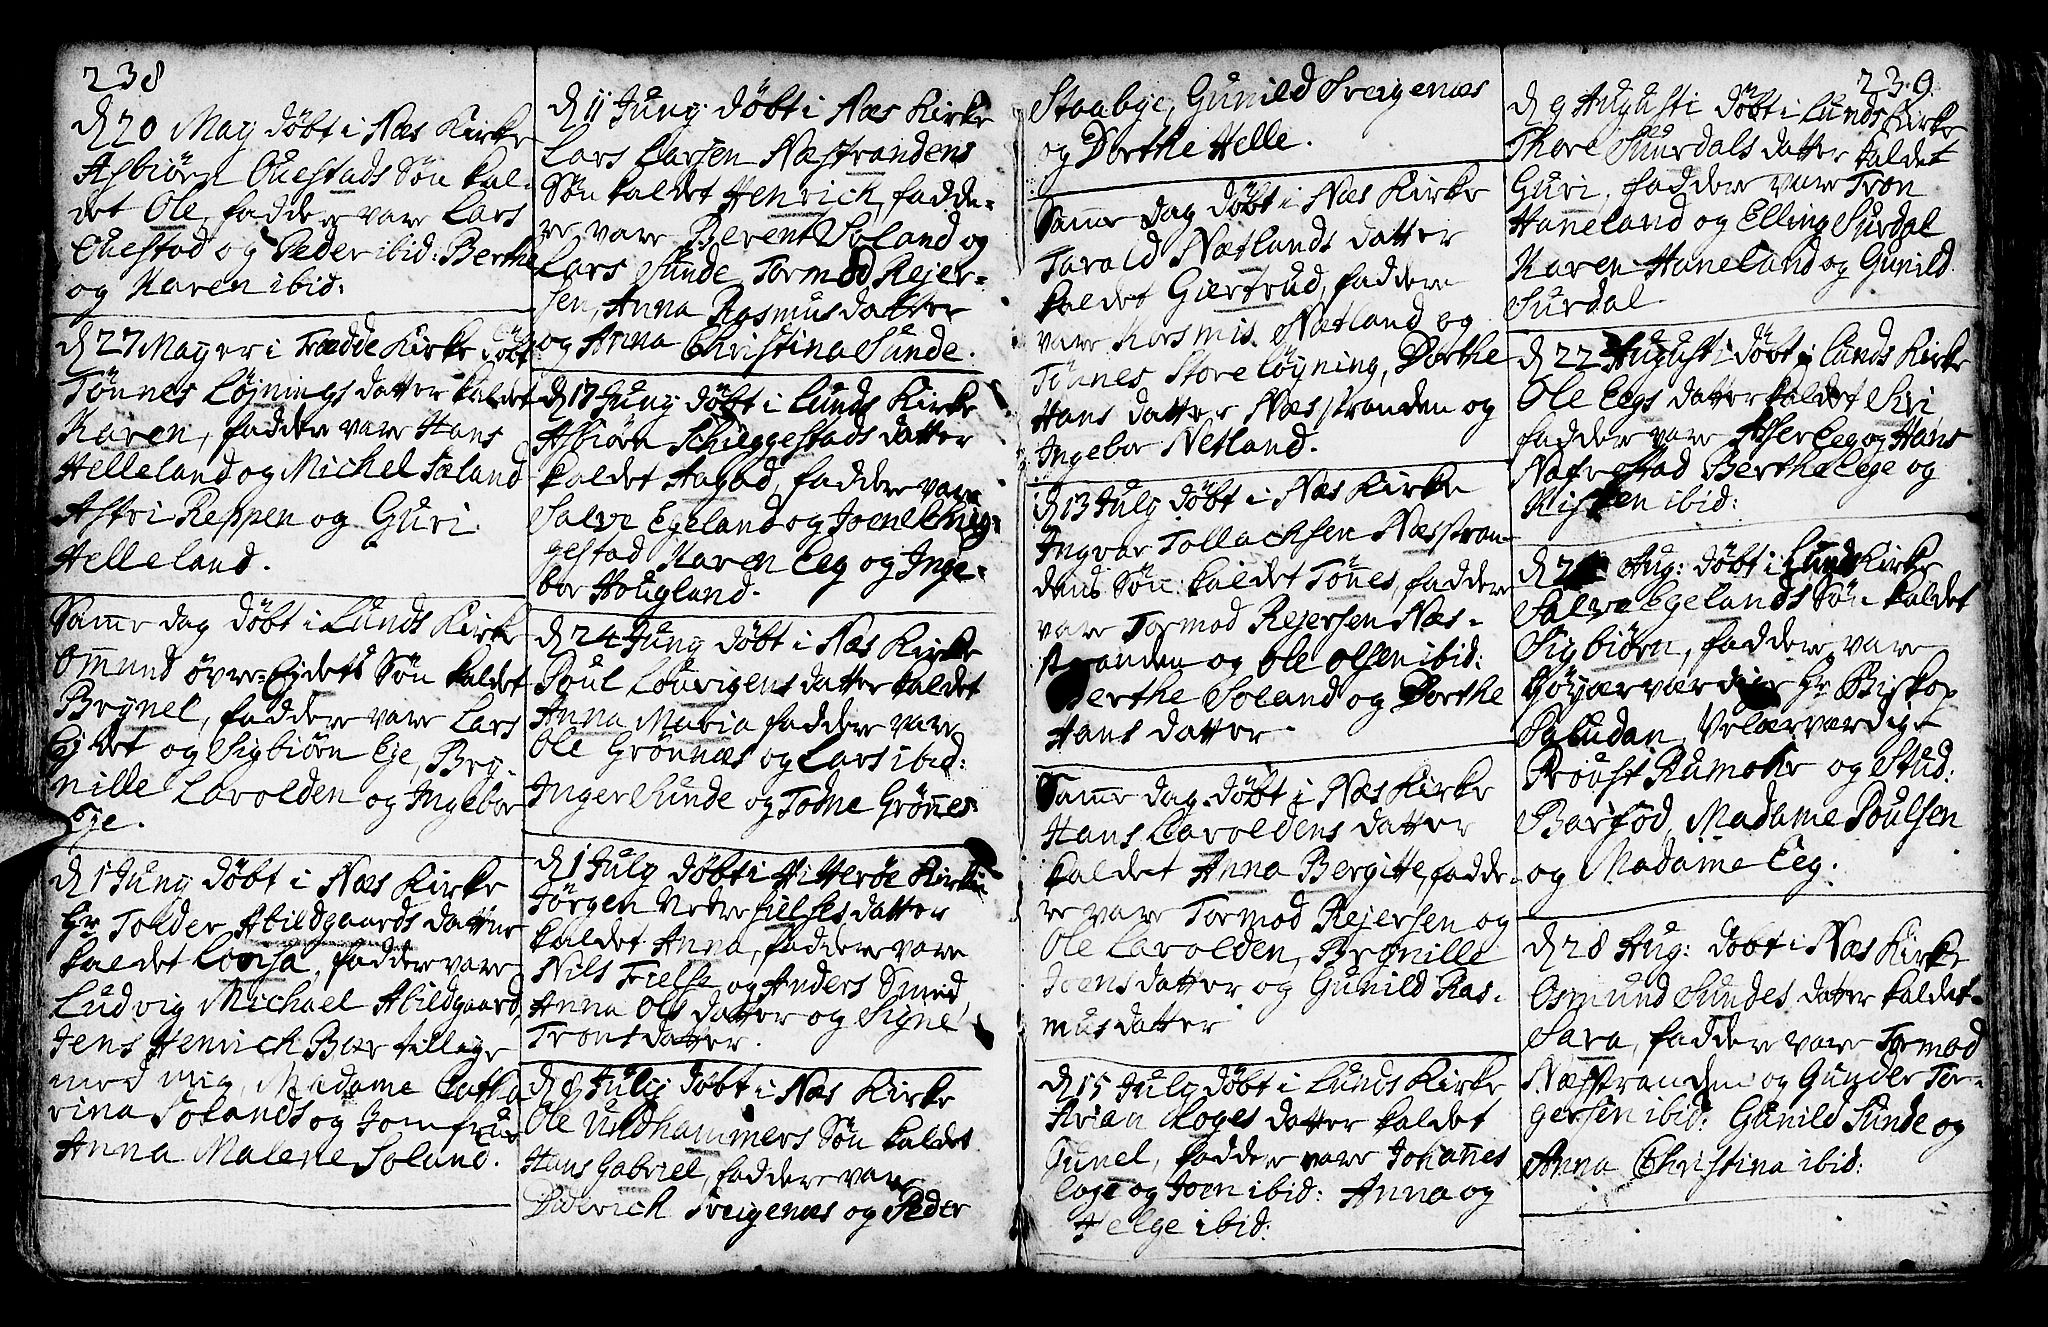 238
d 20 May döbt i Næs Kirke
Asbiörn Ouestads Sön kal-
det Ole, faddere vare Lars
Ouestad og Peder ibid: Berthe
og Karen ibid:
d 27 May er i Fædde Kirke döbt
Tönnes Löjnings datter kaldet
Karen, faddere vare Hans
Helleland og Michel Sæland
Astri Reppen og Guri
Helleland.
Samme dag döbt i Lunds Kirke
Omund övre-Eydets Sön kaldet
Brynel, faddere vare Lars
Eydet og Sigbiörn Eje, Bry-
nille Lavolden og Ingebor
Eje.
d 1 Juny döbt i Næs Kirke
Hr Tolder Abildgaards datter
kaldet Lovisa, faddere vare
Ludvig Michael Abildgaard,
Jens Henrich Bær tillige
med mig, Madame Catha
rina Solands og Jomfrue
Anna Malene Soland.
d 11 Juny döbt i Næs Kirke
Lars Larsen Næstrandens
Sön kaldet Henrich, fadde-
re vare Berent Soland og
Lars Sunde Tormod Rejer-
sen, Anna Rasmusdatter
og Anna Christina Sunde.
d 17 Juny döbt i Lunds Kirke
Asbiörn Schieggestads datter
kaldet Aagad, faddere vare
Salve Egeland og Joen Schieg-
gestad Karen Eeg og Inge-
bor Hougland.
d 24 Juny döbt i Næs Kirke
Poul Lourigens datter kaldet
Anna Maria faddere vare
Ole Grönnæs og Lars ibid:
Inger Sunde og Todne Grönnes
d 1 July döbt i Hitteröe Kirke
Jörgen Nedre fielses datter
kaldet Anna, faddere vare
Nils Fielse og Anders Smed,
Anna Ols datter og Signe
Trons datter.
d 8 July döbt i Næs Kirke
Ole Undhammers Sön kaldet
Hans Gabriel, faddere vare
Diderich Sveigenæs og Peder
Staabye, Gunild Sveigenæs
og Dorthe Helle.
Samme dag döbt i Næs Kirke
Tarald Nætlands datter
kaldet Giertrud, faddere
vare Rasmis Nætland og
Tönnes Store löyning, Dorthe
Hans datter Næsstranden og
Ingebor Netland.
d 13 July döbt i Næs Kirke
Ingvar Tollachsen Næsstran-
dens Sön kaldet Tönes, faddere
vare Tormod Rejersen Næs-
stranden og Ole Olsen ibid:
Berthe Soland og Dorthe
Hans datter
Samme dag döbt i Næs Kirke
Hans Lavoldens datter
kaldet Anna Bergitte, fadde-
re vare Tormod Rejersen og
Ole Lavolden, Brynille
Joens datter og Gunild Ras-
mus datter
d 15 July döbt i Lunds Kirke
Arian Loges datter kaldet
Gunel, faddere vare Johannes
Loge og Joen ibid: Anna og
Helge ibid:
239
d 9 Augusti döbt i Lunds Kirke
Thore Suurdals datter kaldet
Guri, faddere vare Tron
Haneland og Elling Surdal
Karen Haneland og Gunild
Surdal.
d 22 Augusti döbt i Lunds Kirke
Ole Eegs datter kaldet Siri
faddere vare Asser Eeg og Hans
Nafrestad Berthe Ege og
Kisten ibid:
d Aug: döbt i Lunds Kirke
Salve Egelands Sön kaldet
Sigbiörn, faddere vare
Höyærværdige Hr Biskop
Paludan, Velærværdige
Proust Rumohr og Stud:
Barfod, Madame Poulsen
og Madame Eeg.
d 28 Aug: döbt i Næs Kirke
Osmund Sundes datter kaldet
Sara, faddere vare Tormod
Næsstranden og Gunder Tor-
gersen ibid: Gunild Sunde og
Anna Christina ibid: